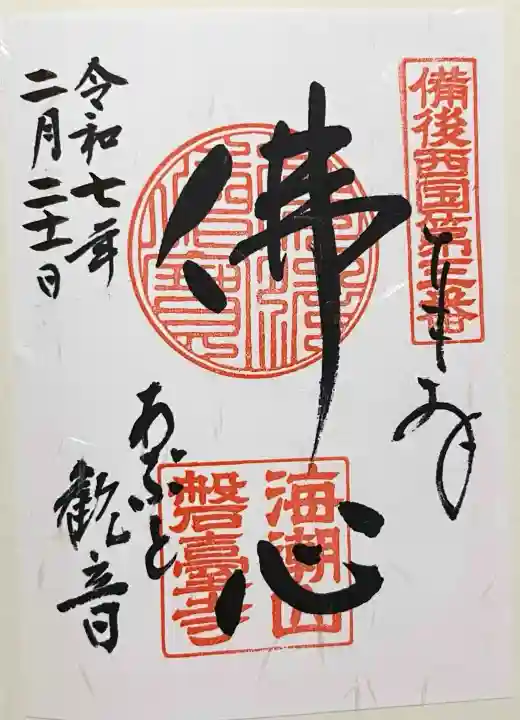 備後西国第三番
奉拝
佛心
海潮山
磐臺寺
あぶと
観音
令和七年
二月二十日